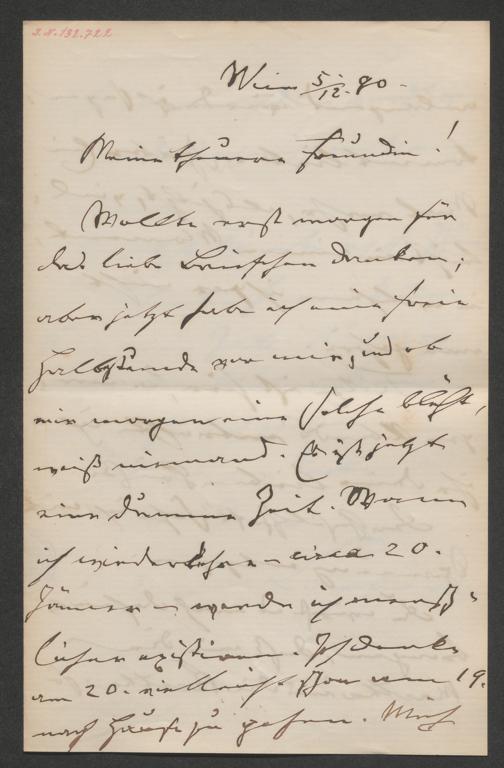 I.N. 132.722
Wien 5./12. 80.
Meine theuere Freundin!
Wollte erst morgen für
das liebe Briefchen danken,
aber jetzt habe ich eine freie
Halbstunde vor mir, und ob
mir morgen eine solche blüht,
weiß niemand. Es ist jetzt
eine dumme Zeit. Wenn
ich wiederkehre – circa 20.
Jänner – werde ich mensch-
licher existiren. Ich denke
am 20. vielleicht schon am 19.
nach Hause zu gehen. Mich